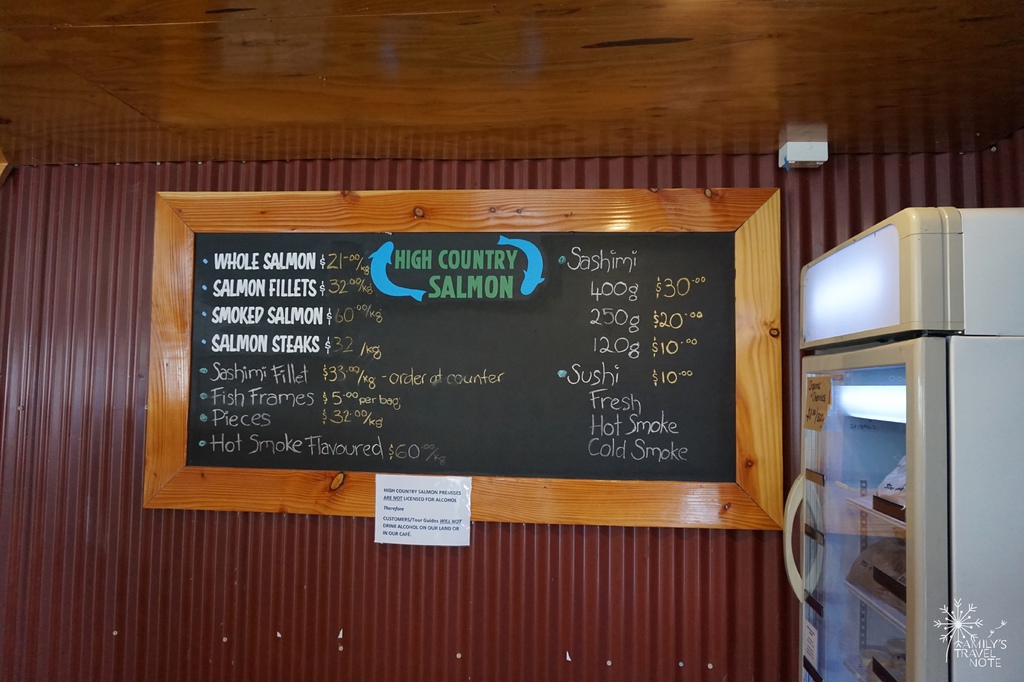 HIGH COUNTRY
SALMON
• WHOLE SALMON $21.00/kg
• SALMON FILLETS $32.00/kg
• SMOKED SALMON $60.00/kg
• SALMON STEAKS $32 /kg
• Sashimi Fillet $33.00/kg - order at counter
• Fish Frames $5.00 per bag
• Pieces $32.00/kg
• Hot Smoke Flavoured $60.00/kg
• Sashimi
400g $30.00
250g $20.00
120g $10.00
• Sushi $10.00
Fresh
Hot Smoke
Cold Smoke
HIGH COUNTRY SALMON PREMISES
ARE NOT LICENSED FOR ALCOHOL
Therefore
CUSTOMERS/Tour Guides WILL NOT
DRINK ALCOHOL ON OUR LAND OR
IN OUR CAFÉ.
FAMILY'S
TRAVEL
NOTE